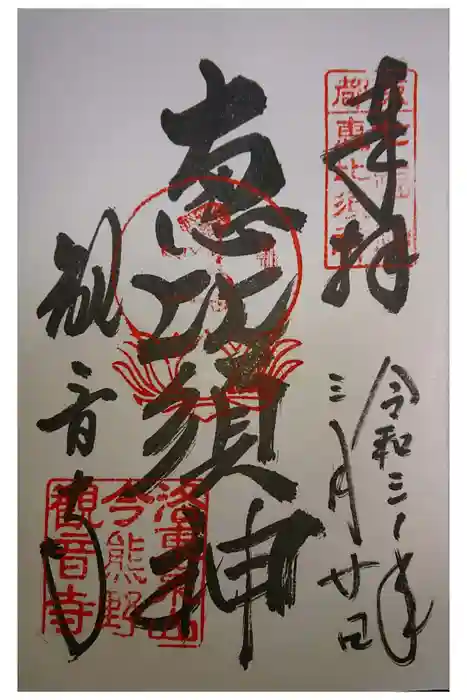 奉拝
令和三年
三月廿日
恵比須神
観音寺
洛東泉山
今熊野
観音寺